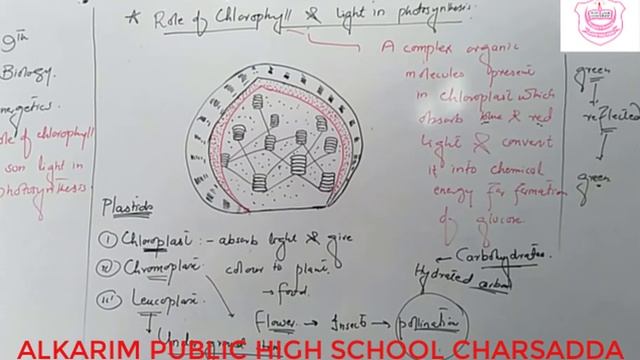 * Role of Chlorophyll & light in photosynthesis.
9th
Biology.
nergetics.
ole of chlorophyll
son light in
photosynthesis.
A complex organic
molecules present
in chloroplast which
absorb blue & red
light & convert
it into chemical
energy for formation
of glucose
green
reflected
green
Plastids
(i) Chloroplast :- absorb light & give
(ii) Chromoplast colour to plant.
→ food.
(iii) Leucoplast
Flower → Insects → pollination
Underground
← Carbohydrates.
Hydrated carbon
ALKARIM PUBLIC HIGH SCHOOL CHARSADDA